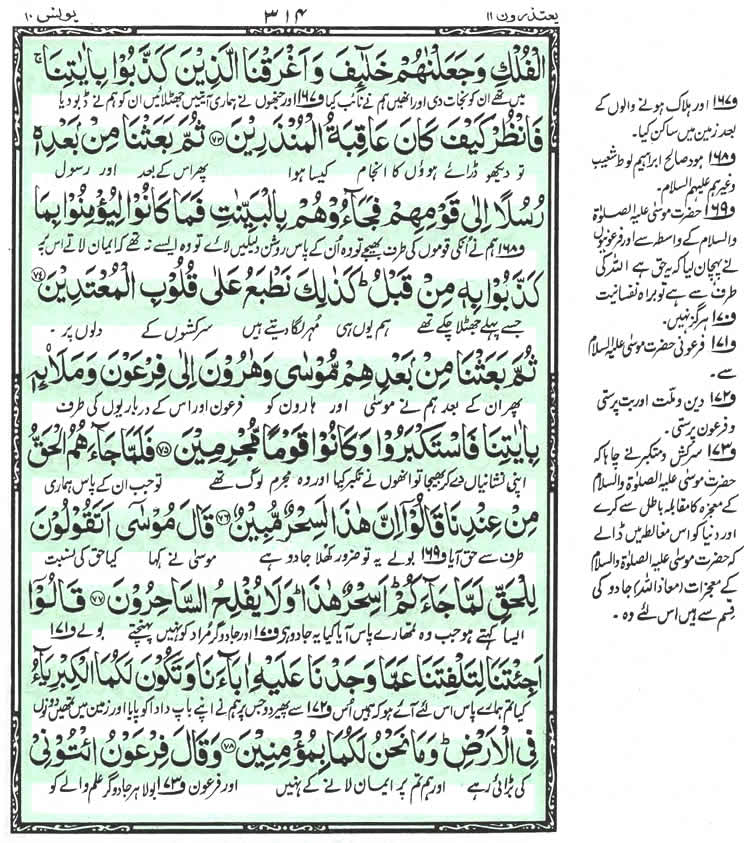 یعتذرون ۱۱
۳۱۴
یونس ۱۰
الْفُلْكِ وَجَعَلْنٰهُمْ خَلٰٓئِفَ وَاَغْرَقْنَا الَّذِیْنَ كَذَّبُوْا بِاٰیٰتِنَاۚ
میں تھے ان کو نجات دی اور انھیں ہم نے نائب کیا و۱۶۷ اور جنھوں نے ہماری آیتیں جھٹلائیں ان کو ہم نے ڈبو دیا
فَانْظُرْ كَیْفَ كَانَ عَاقِبَةُ الْمُنْذَرِیْنَ ﴿۷۳﴾ ثُمَّ بَعَثْنَا مِنْۢ بَعْدِهٖ
تو دیکھو ڈرائے ہوؤں کا انجام کیسا ہوا پھر اس کے بعد اور رسول
رُسُلًا اِلٰى قَوْمِهِمْ فَجَآءُوْهُمْ بِالْبَیِّنٰتِ فَمَا كَانُوْا لِیُؤْمِنُوْا بِمَا
و۱۶۸ ہم نے انکی قوموں کی طرف بھیجے تو وہ اُن کے پاس روشن دلیلیں لائے تو وہ ایسے نہ تھے کہ ایمان لاتے اس پر
كَذَّبُوْا بِهٖ مِنْ قَبْلُؕ كَذٰلِكَ نَطْبَعُ عَلٰى قُلُوْبِ الْمُعْتَدِیْنَ ﴿۷۴﴾
جسے پہلے جھٹلا چکے تھے ہم یوں ہی مُہر لگا دیتے ہیں سرکشوں کے دلوں پر ۔
ثُمَّ بَعَثْنَا مِنْۢ بَعْدِهِمْ مُّوْسٰى وَهٰرُوْنَ اِلٰى فِرْعَوْنَ وَمَلَا۟ئِهٖ
پھر ان کے بعد ہم نے موسٰی اور ہارون کو فرعون اور اس کے درباریوں کی طرف
بِاٰیٰتِنَا فَاسْتَكْبَرُوْا وَكَانُوْا قَوْمًا مُّجْرِمِیْنَ ﴿۷۵﴾ فَلَمَّا جَآءَهُمُ الْحَقُّ
اپنی نشانیاں دے کر بھیجا تو انھوں نے تکبر کیا اور وہ مجرم لوگ تھے تو جب ان کے پاس ہماری
مِنْ عِنْدِنَا قَالُوْۤا اِنَّ هٰذَا لَسِحْرٌ مُّبِیْنٌ ﴿۷۶﴾ قَالَ مُوْسٰۤى اَتَقُوْلُوْنَ
طرف سے حق آیا و۱۶۹ بولے یہ تو ضرور کھلا جادو ہے موسٰی نے کہا کیا حق کی نسبت
لِلْحَقِّ لَمَّا جَآءَكُمْؕ اَسِحْرٌ هٰذَاؕ وَلَا یُفْلِحُ السّٰحِرُوْنَ ﴿۷۷﴾ قَالُوْۤا
ایسا کہتے ہو جب وہ تمھارے پاس آیا کیا یہ جادو ہی و۱۷۰ اور جادوگر مُراد کو نہیں پہنچتے بولے و۱۷۱
اَجِئْتَنَا لِتَلْفِتَنَا عَمَّا وَجَدْنَا عَلَیْهِ اٰبَآءَنَا وَتَكُوْنَ لَكُمَا الْكِبْرِیَآءُ
کیا تم ہمارے پاس اس لئے آئے ہو کہ ہمیں اُس و۱۷۲ سے پھیر دو جس پر ہم نے اپنے باپ دادا کو پایا اور زمین میں تمھیں دونوں
فِی الْاَرْضِؕ وَمَا نَحْنُ لَكُمَا بِمُؤْمِنِیْنَ ﴿۷۸﴾ وَقَالَ فِرْعَوْنُ ائْتُوْنِیْ
کی بڑائی رہے اور ہم تم پر ایمان لانے کے نہیں اور فرعون و۱۷۳ بولا ہر جادوگر علم والے کو
و۱۶۷ اور ہلاک ہونے والوں کے
بعد زمین میں ساکن کیا۔
و۱۶۸ ہود صالح ابراہیم لوط شعیب
وغیرہم علیہم السلام۔
و۱۶۹ حضرت موسٰی علیہ الصلاۃ
والسلام کے واسطہ سے اور فرعونیوں
نے پہچان لیا کہ یہ حق ہے اللہ کی
طرف سے ہے تو براہ نفسانیت
و۱۷۰ ہرگز نہیں۔
و۱۷۱ فرعونی حضرت موسٰی علیہ السلام
سے۔
و۱۷۲ دین و ملت اور بت پرستی
و فرعون پرستی۔
و۱۷۳ سرکش و متکبر نے چاہا کہ
حضرت موسٰی علیہ الصلوٰۃ والسلام
کے معجزہ کا مقابلہ باطل سے کرے
اور دنیا کو اس مغالطہ میں ڈالے
کہ حضرت موسٰی علیہ الصلاۃ والسلام
کے معجزات (معاذ اللہ) جادو کی
قسم سے ہیں اس لئے وہ ۔